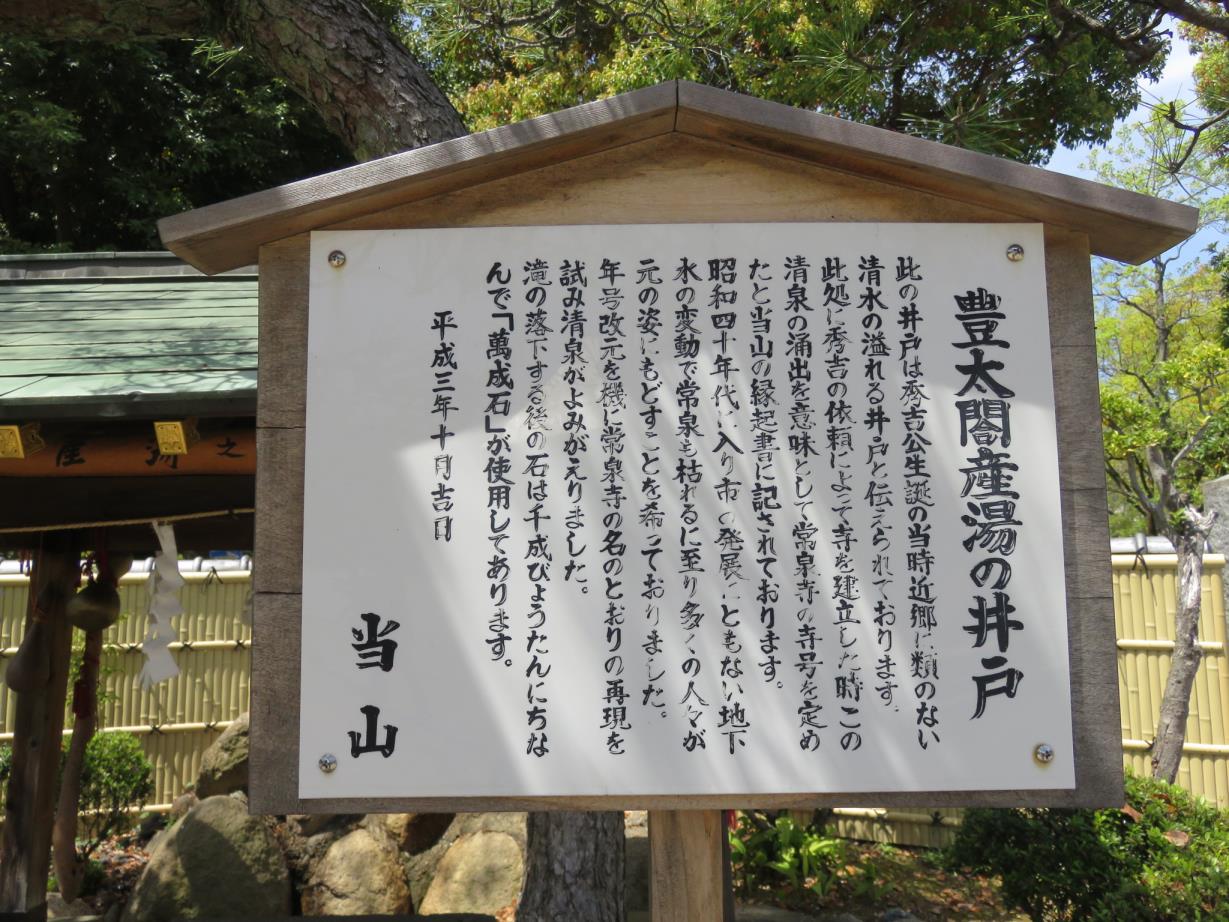 豊太閤産湯の井戸
此の井戸は秀吉公生誕の当時近郷に類のない
清水の溢れる井戸と伝えられております。
此処に秀吉の依頼によって寺を建立した時この
清泉の涌出を意味として常泉寺の寺号を定め
たと当山の縁起書に記されております。
昭和四十年代に入り市の発展にともない地下
水の変動で常泉も枯れるに至り多くの人々が
元の姿にもどすことを希っておりました。
年号改元を機に常泉寺の名のとおりの再現を
試み清泉がよみがえりました。
滝の落下する後の石は千成びょうたんにちな
んで「萬成石」が使用してあります。
平成三年十月吉日
当山